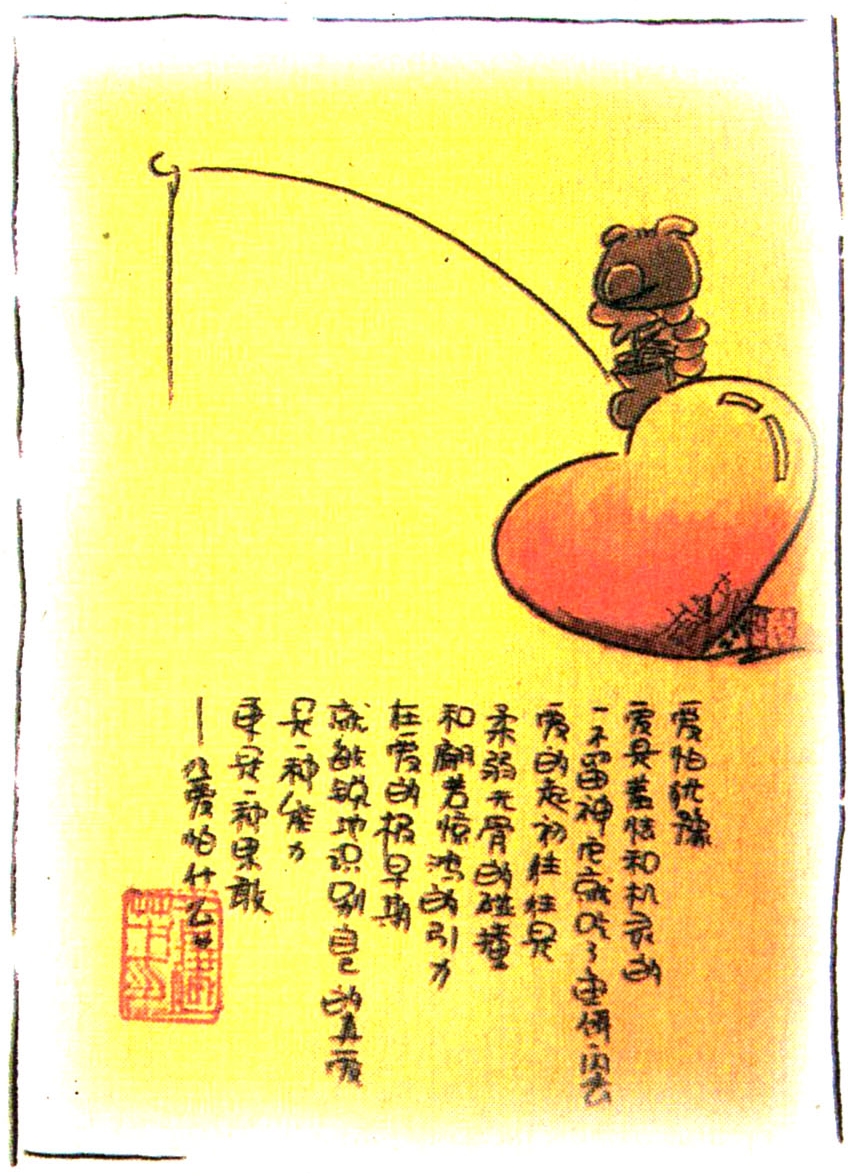 爱怕犹豫
爱是羞怯和机灵的
一不留神它就吃了鱼饵闪去
爱的起初往往是
柔弱无骨的碰撞
和翩若惊鸿的引力
在爱的极早期
就敏锐地识别自己的真爱
是一种能力
更是一种果敢
—《爱怕什么》